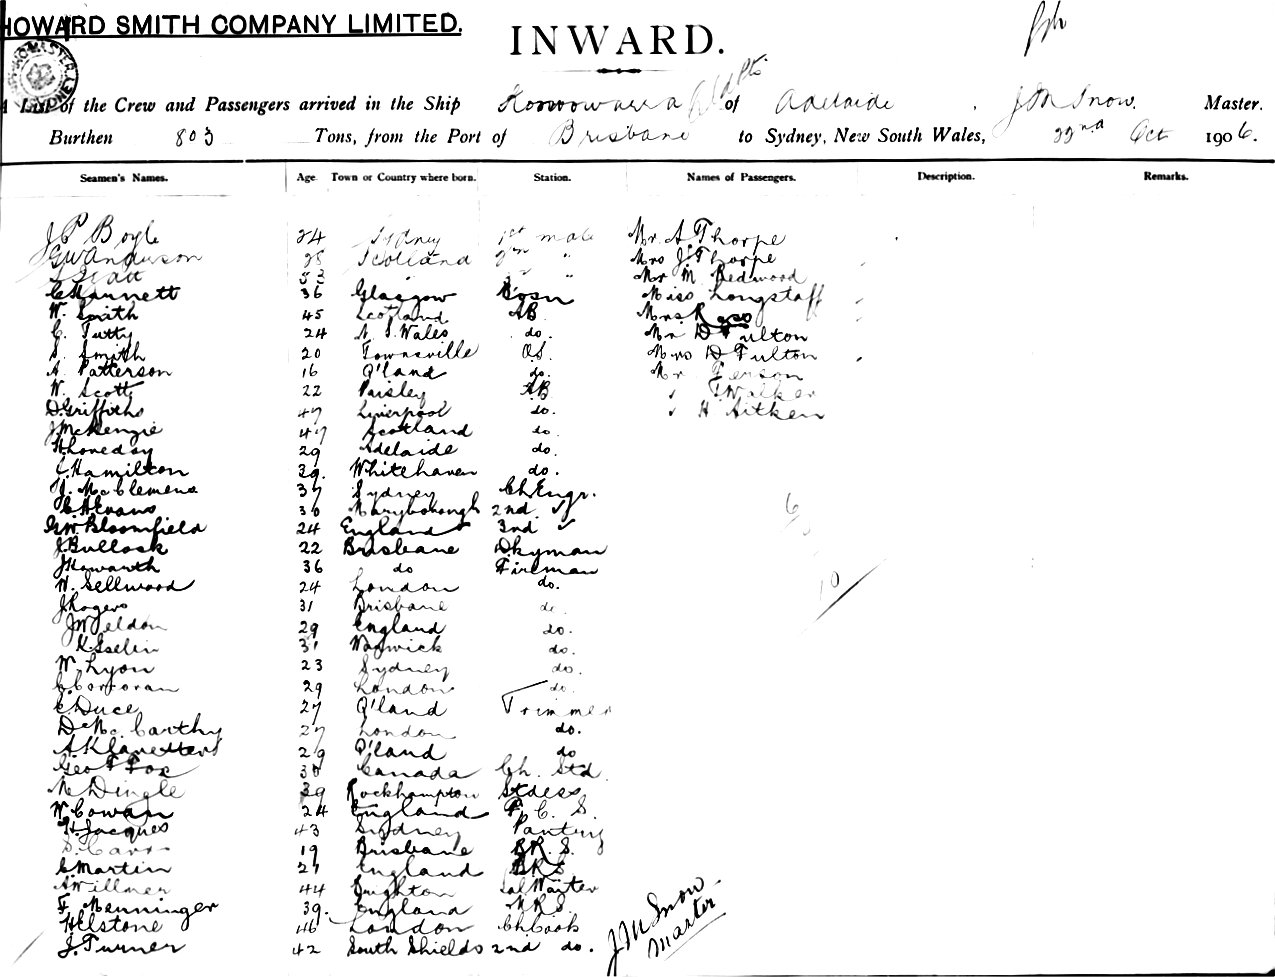 HOWARD SMITH COMPANY LIMITED.
INWARD.
A List of the Crew and Passengers arrived in the Ship Koonowarra of Adelaide, J M Snow. Master.
Burthen 803 Tons, from the Port of Brisbane to Sydney, New South Wales, 22nd Oct 1906.
Seamen's Names. Age Town or Country where born. Station. Names of Passengers. Description. Remarks.
J P Boyle 24 Sydney 1st mate Mr. A. Thorpe
G W Anderson 28 Scotland 2nd " Mrs J. Thorpe
53 " 3rd " Mr M Redwood
C Hannett 36 Glasgow Bosn Miss Longstaff
W. Smith 45 Scotland AB Mrs Ross
C. Tutty 24 N. S. Wales do. Mr D Fulton
S. Smith 20 Townsville OS. Mrs D Fulton
A. Patterson 16 Q'land do. Mr Ferson
W. Scott 22 Paisley AB " T Walker
D. Griffiths 47 Liverpool do. " H Aitken
J McKenzie 47 Scotland do.
H Loveday 29 Adelaide do.
J. Hamilton 39. Whitehaven do.
McClemens 37 Sydney Ch Engr.
C H Evans 30 Maryborough 2nd "
G W. Bloomfield 24 England 3rd "
J. Bullock 22 Brisbane Dkyman
J Howarth 36 do Fireman
W. Sellwood 24 London do.
J Rogers 31 Brisbane do.
J Weldon 29 England do.
K Iselin 31 Warwick do.
W. Lyon 23 Sydney do.
C. Corcoran 29 London do.
C Duce 27 Q'land Trimmer
D McCarthy 27 London do.
A 29 Q'land do
Geo F Fox 30 Canada Ch. Std.
M Dingle 39 Rockhampton Stdess
W. Cowan 24 England F. C. S.
H. Jacques 43 Sydney Pantry
S. Carr 19 Brisbane B.R. S.
C. Martin 21 England BRS
A Willmer 44 Brighton Sal Waiter
F. Menninger 39. England M.R.S.
H Elstone 46 London Ch Cook
J. Turner 42 South Shields 2nd do.
10
J M Snow
Master